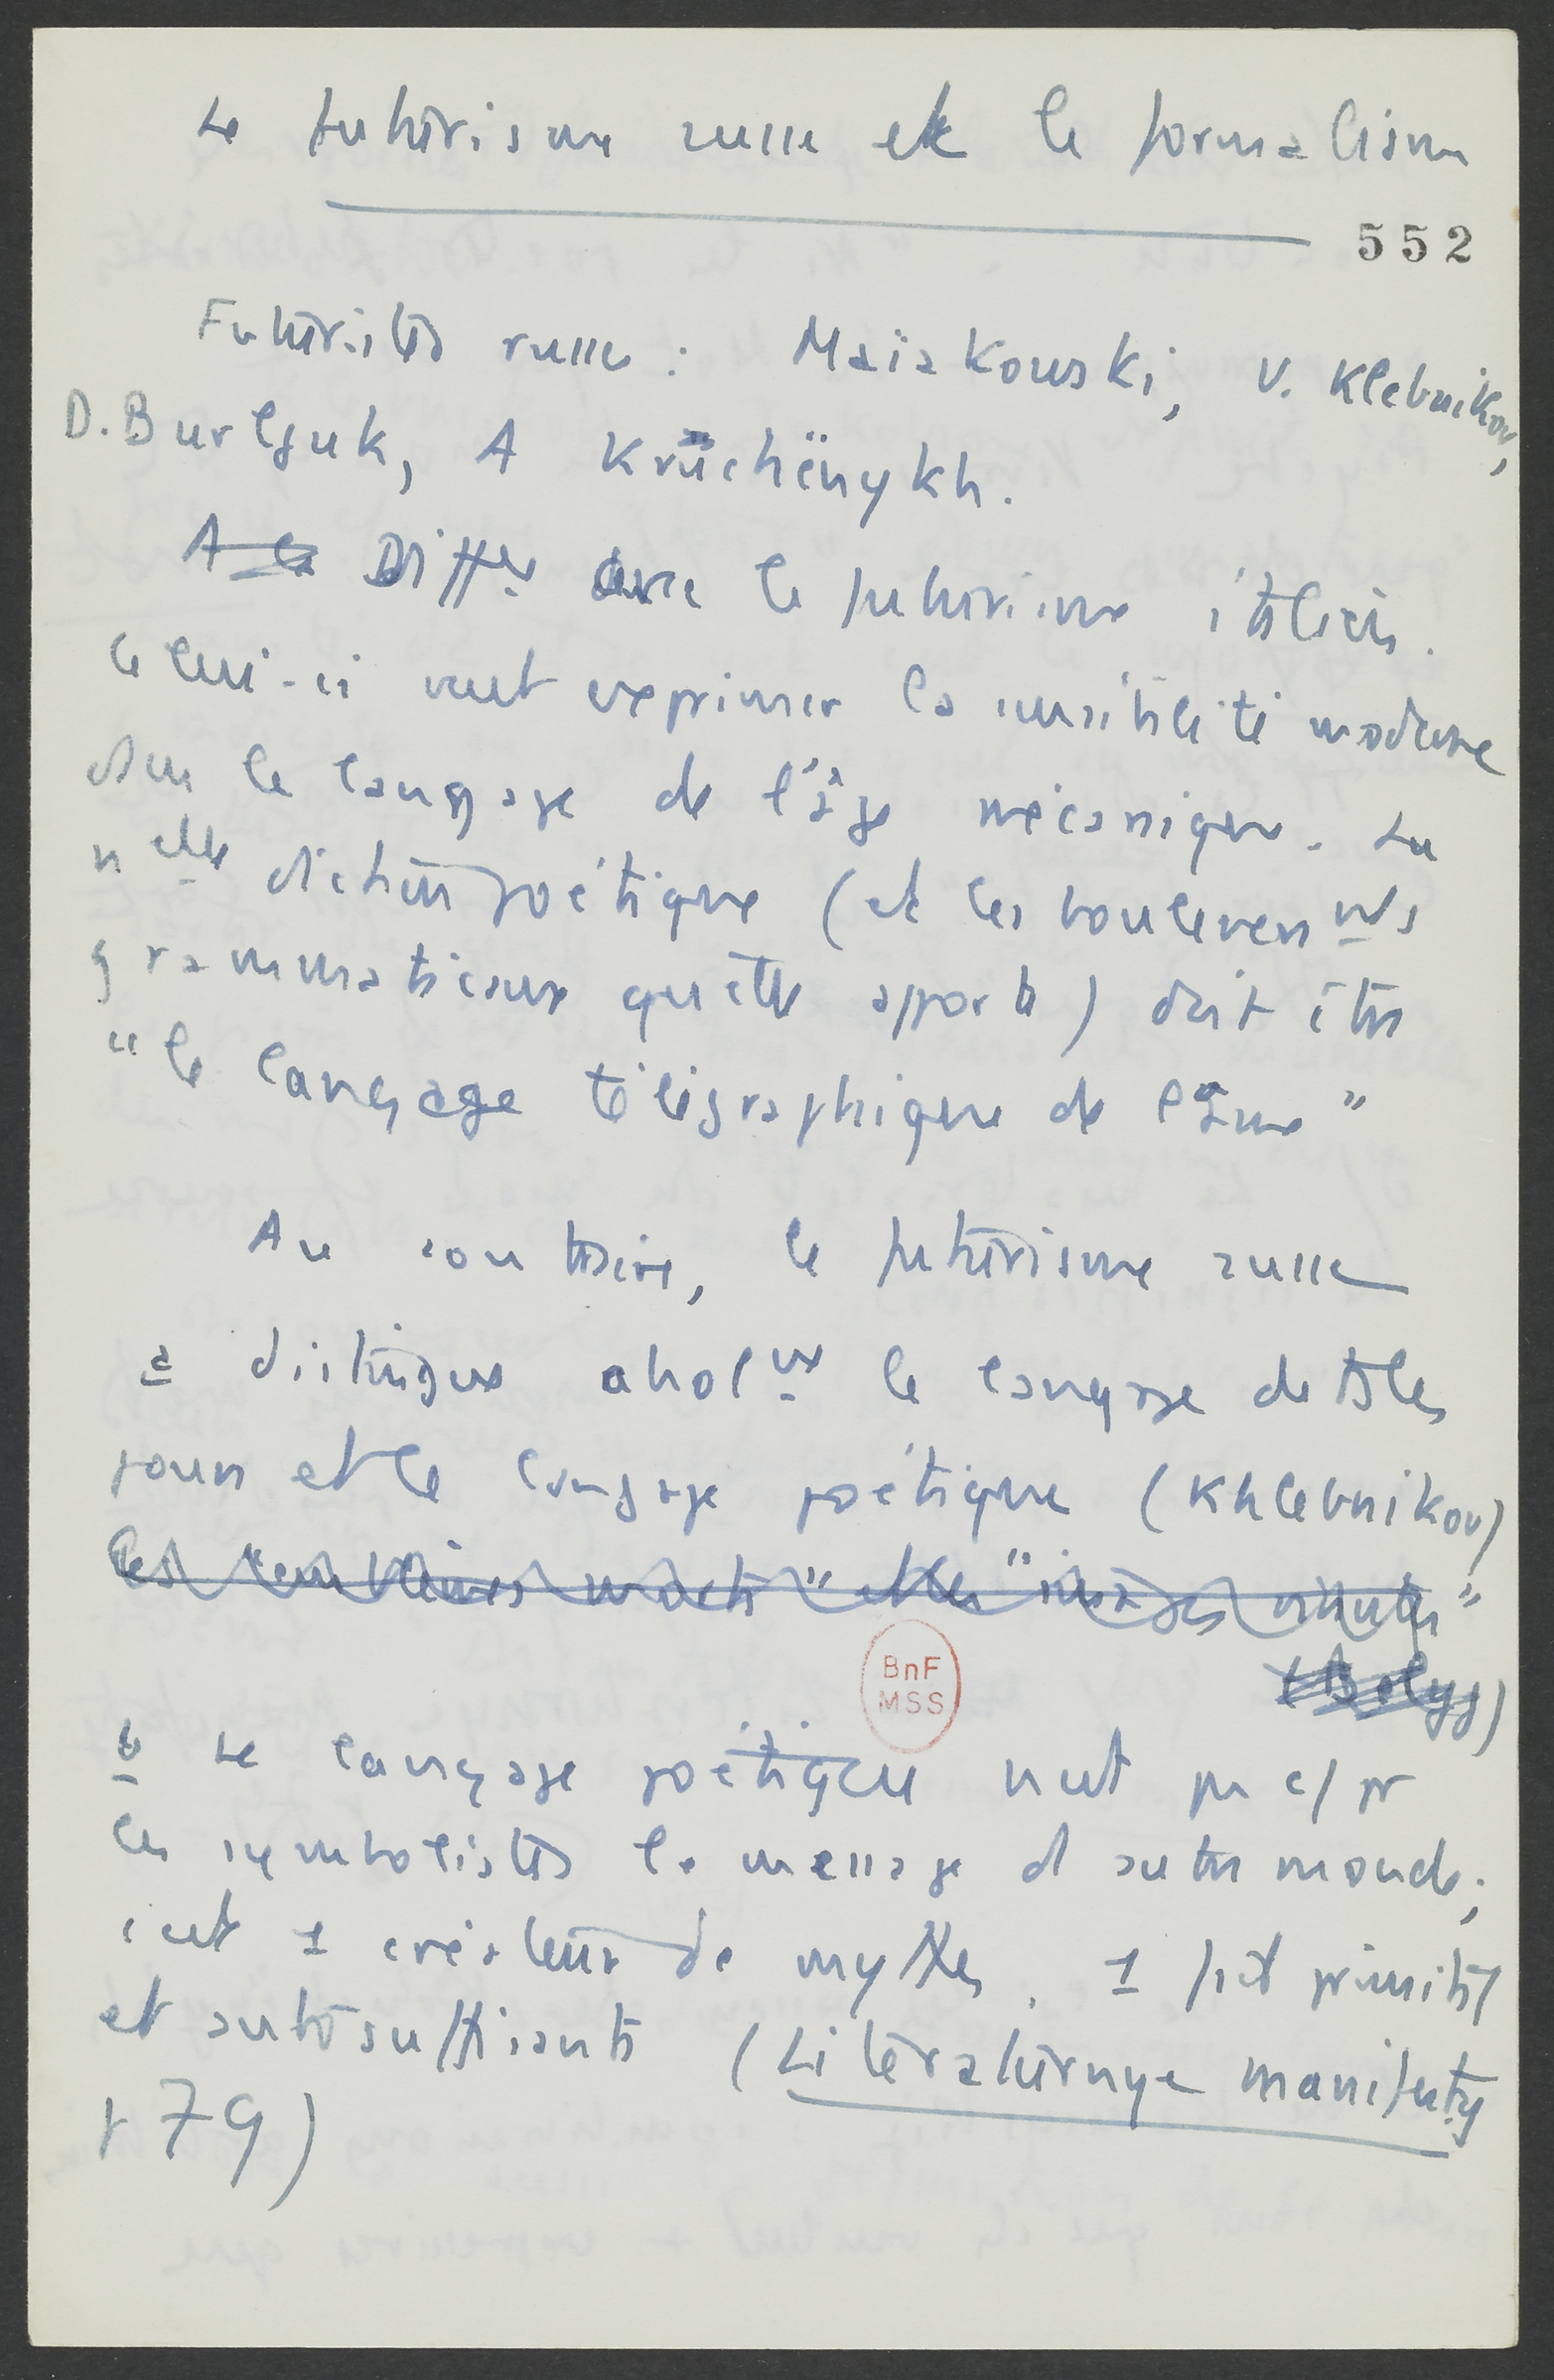 Le futurisme russe et le formalisme
552
Futuristes russes : Maiakowski, V. Klebnikov,
D. Burljuk, A Krüchënykh.
A la Diffce avec le futurisme italien.
Celui-ci veut exprimer la sensibilité moderne
dans le langage de l'âge mécanique. La
nelle diction poétique (et les bouleversmts
grammaticaux qu'elle apporte) doit être
"le langage télégraphique de l'âme"
Au contraire, le futurisme russe
a distingue absolmt le langage de ts les
jours et le langage poétique (Khlebnikov)
les "mots" et les "images"
(Belyj)
b Le langage poétique n'est pas c/ pr
les symbolistes le message d'autre monde ;
c'est 1 créateur de mythes. 1 fait primitif
et autosuffisants (Literaturnye manifesty
p 79)
BnF
MSS